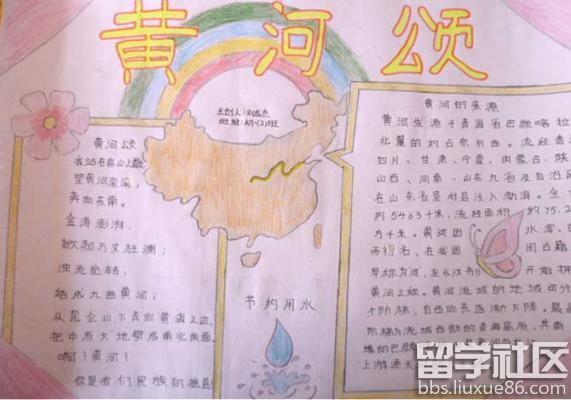 黄河颂
主创人:
黄河颂
我站在高山之巅
望黄河滚滚,
奔向东南。
金涛澎湃,
掀起万丈狂澜;
浊流宛转,
结成九曲黄河;
从昆仑山下奔向黄海之边,
把中原大地劈成南北两面。
啊!黄河!
你是我们民族的摇篮
节约用水
黄河的来源
黄河发源于青海省巴颜喀拉
北麓的约古宗列曲。流经青海
四川、甘肃、宁夏、内蒙古、陕
山西、河南、山东九省及自治区
在山东省垦利县注入渤海。全长
约5464千米,流经面积 约75.2
万千米。黄河因 水浑
而得名,在我国 间古籍
早称为河,至《汉书》 开始用
黄河之称。黄河流域的地域
个阶梯,自西向东逐渐下降。最
阶梯为流域西部的青海高原,其南
缘的巴颜
上游通天
留学社区
bbs.liuxue86.com